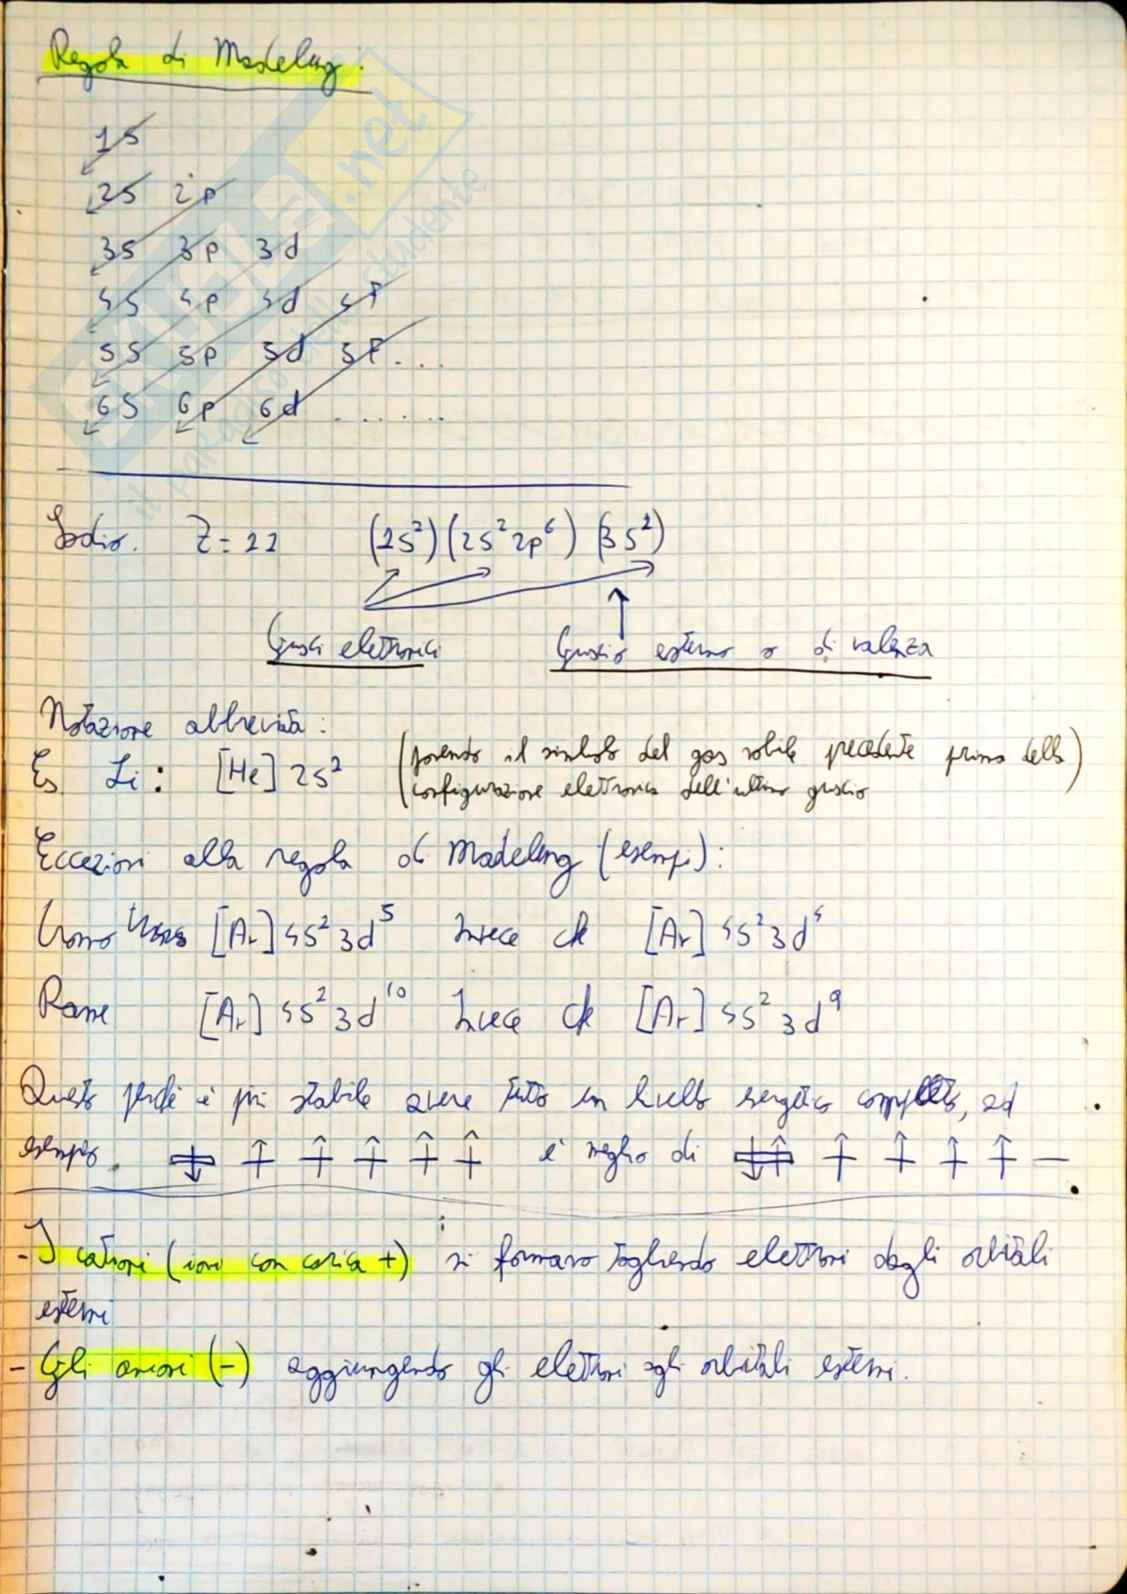 Regola di Madelung:
1s
2s 2p
3s 3p 3d
4s 4p 4d 4f
5s 5p 5d 5f....
6s 6p 6d .......
Sodio. Z=11 (1s²)(2s² 2p⁶) (3s²)
Gusci elettronici Guscio esterno o di valenza
Notazione abbreviata:
Es Li: [He] 2s² (ponendo il simbolo del gas nobile precedente prima della
configurazione elettronica dell'ultimo guscio)
Eccezioni alla regola di Madelung (esempi):
Cromo [Ar] 4s² 3d⁵ Invece che [Ar] 4s² 3d⁴
Rame [Ar] 4s² 3d¹⁰ Invece che [Ar] 4s² 3d⁹
Questo perché è più stabile avere tutto un livello energetico completo, ad
esempio è meglio di
- I cationi (ioni con carica +) si formano togliendo elettroni dagli orbitali
esterni
- Gli anioni (-) aggiungendo gli elettroni agli orbitali esterni.